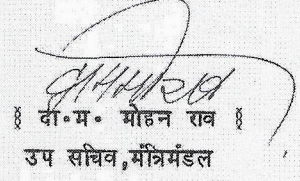 § दी॰म॰ मोहन राव §
उप सचिव,मंत्रिमंडल